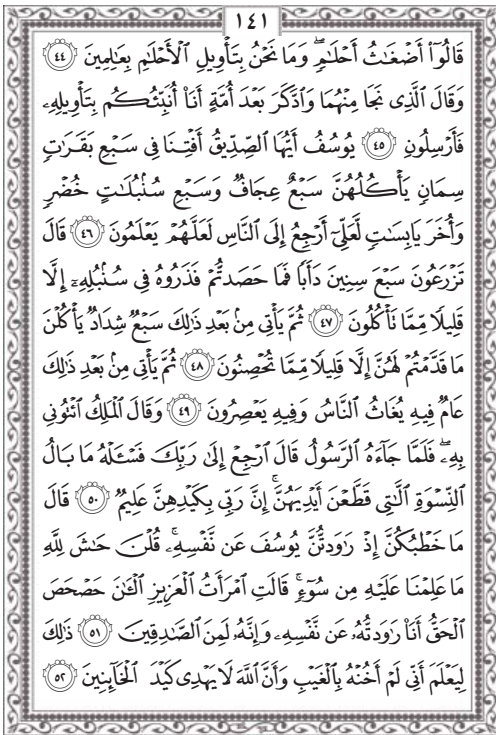 ١٤١
قَالُوٓاْ أَضْغَٰثُ أَحْلَٰمٖۖ وَمَا نَحْنُ بِتَأْوِيلِ ٱلْأَحْلَٰمِ بِعَٰلِمِينَ ٤٤
وَقَالَ ٱلَّذِي نَجَا مِنْهُمَا وَٱدَّكَرَ بَعْدَ أُمَّةٍ أَنَا۠ أُنَبِّئُكُم بِتَأْوِيلِهِۦ
فَأَرْسِلُونِ ٤٥ يُوسُفُ أَيُّهَا ٱلصِّدِّيقُ أَفْتِنَا فِي سَبْعِ بَقَرَٰتٖ
سِمَانٖ يَأْكُلُهُنَّ سَبْعٌ عِجَافٞ وَسَبْعِ سُنۢبُلَٰتٍ خُضْرٖ
وَأُخَرَ يَابِسَٰتٖ لَّعَلِّيٓ أَرْجِعُ إِلَى ٱلنَّاسِ لَعَلَّهُمْ يَعْلَمُونَ ٤٦ قَالَ
تَزْرَعُونَ سَبْعَ سِنِينَ دَأَبٗا فَمَا حَصَدتُّمْ فَذَرُوهُ فِي سُنۢبُلِهِۦٓ إِلَّا
قَلِيلٗا مِّمَّا تَأْكُلُونَ ٤٧ ثُمَّ يَأْتِي مِنۢ بَعْدِ ذَٰلِكَ سَبْعٞ شِدَادٞ يَأْكُلْنَ
مَا قَدَّمْتُمْ لَهُنَّ إِلَّا قَلِيلٗا مِّمَّا تُحْصِنُونَ ٤٨ ثُمَّ يَأْتِي مِنۢ بَعْدِ ذَٰلِكَ
عَامٞ فِيهِ يُغَاثُ ٱلنَّاسُ وَفِيهِ يَعْصِرُونَ ٤٩ وَقَالَ ٱلْمَلِكُ ٱئْتُونِي
بِهِۦۖ فَلَمَّا جَآءَهُ ٱلرَّسُولُ قَالَ ٱرْجِعْ إِلَىٰ رَبِّكَ فَسْـَٔلْهُ مَا بَالُ
ٱلنِّسْوَةِ ٱلَّٰتِي قَطَّعْنَ أَيْدِيَهُنَّۚ إِنَّ رَبِّي بِكَيْدِهِنَّ عَلِيمٞ ٥٠ قَالَ
مَا خَطْبُكُنَّ إِذْ رَٰوَدتُّنَّ يُوسُفَ عَن نَّفْسِهِۦۚ قُلْنَ حَٰشَ لِلَّهِ
مَا عَلِمْنَا عَلَيْهِ مِن سُوٓءٖۚ قَالَتِ ٱمْرَأَتُ ٱلْعَزِيزِ ٱلْـَٰٔنَ حَصْحَصَ
ٱلْحَقُّ أَنَا۠ رَٰوَدتُّهُۥ عَن نَّفْسِهِۦ وَإِنَّهُۥ لَمِنَ ٱلصَّٰدِقِينَ ٥١ ذَٰلِكَ
لِيَعْلَمَ أَنِّي لَمْ أَخُنْهُ بِٱلْغَيْبِ وَأَنَّ ٱللَّهَ لَا يَهْدِي كَيْدَ ٱلْخَآئِنِينَ ٥٢